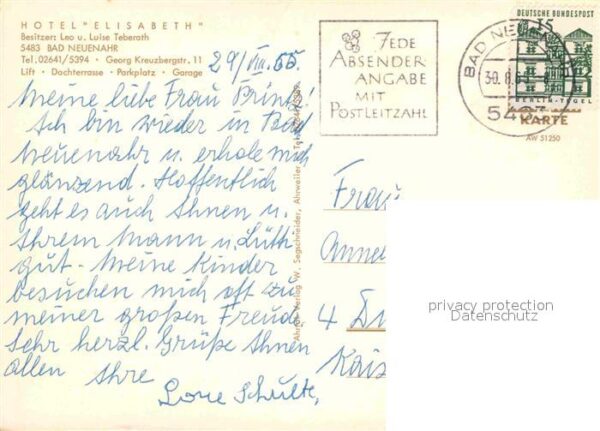 HOTEL "ELISABETH"
Besitzer: Leo u. Luise Teberath
5483 BAD NEUENAHR
Tel. 02641/5394 · Georg Kreuzbergstr. 11
Lift · Dachterrasse · Parkplatz · Garage
29/VIII. 65.
Meine liebe Frau Brink!
Ich bin wieder in Bad
Neuenahr u. erhole mich
glänzend. Hoffentlich
geht es auch Ihnen u.
Ihrem Mann u. Lütti
gut. Meine Kinder
besuchen mich oft zu
meiner großen Freude,
Sehr herzl. Grüße Ihnen
allen Ihre
Lore Schulte,
JEDE
ABSENDER-
ANGABE
MIT
POSTLEITZAHL
BAD NEUENAHR
30.8.
DEUTSCHE BUNDESPOST
15
BERLIN-TEGEL
KARTE
AW 51250
Verlag W. Segschneider, Ahrweiler
Frau
Anne
4
Kais
privacy protection
Datenschutz